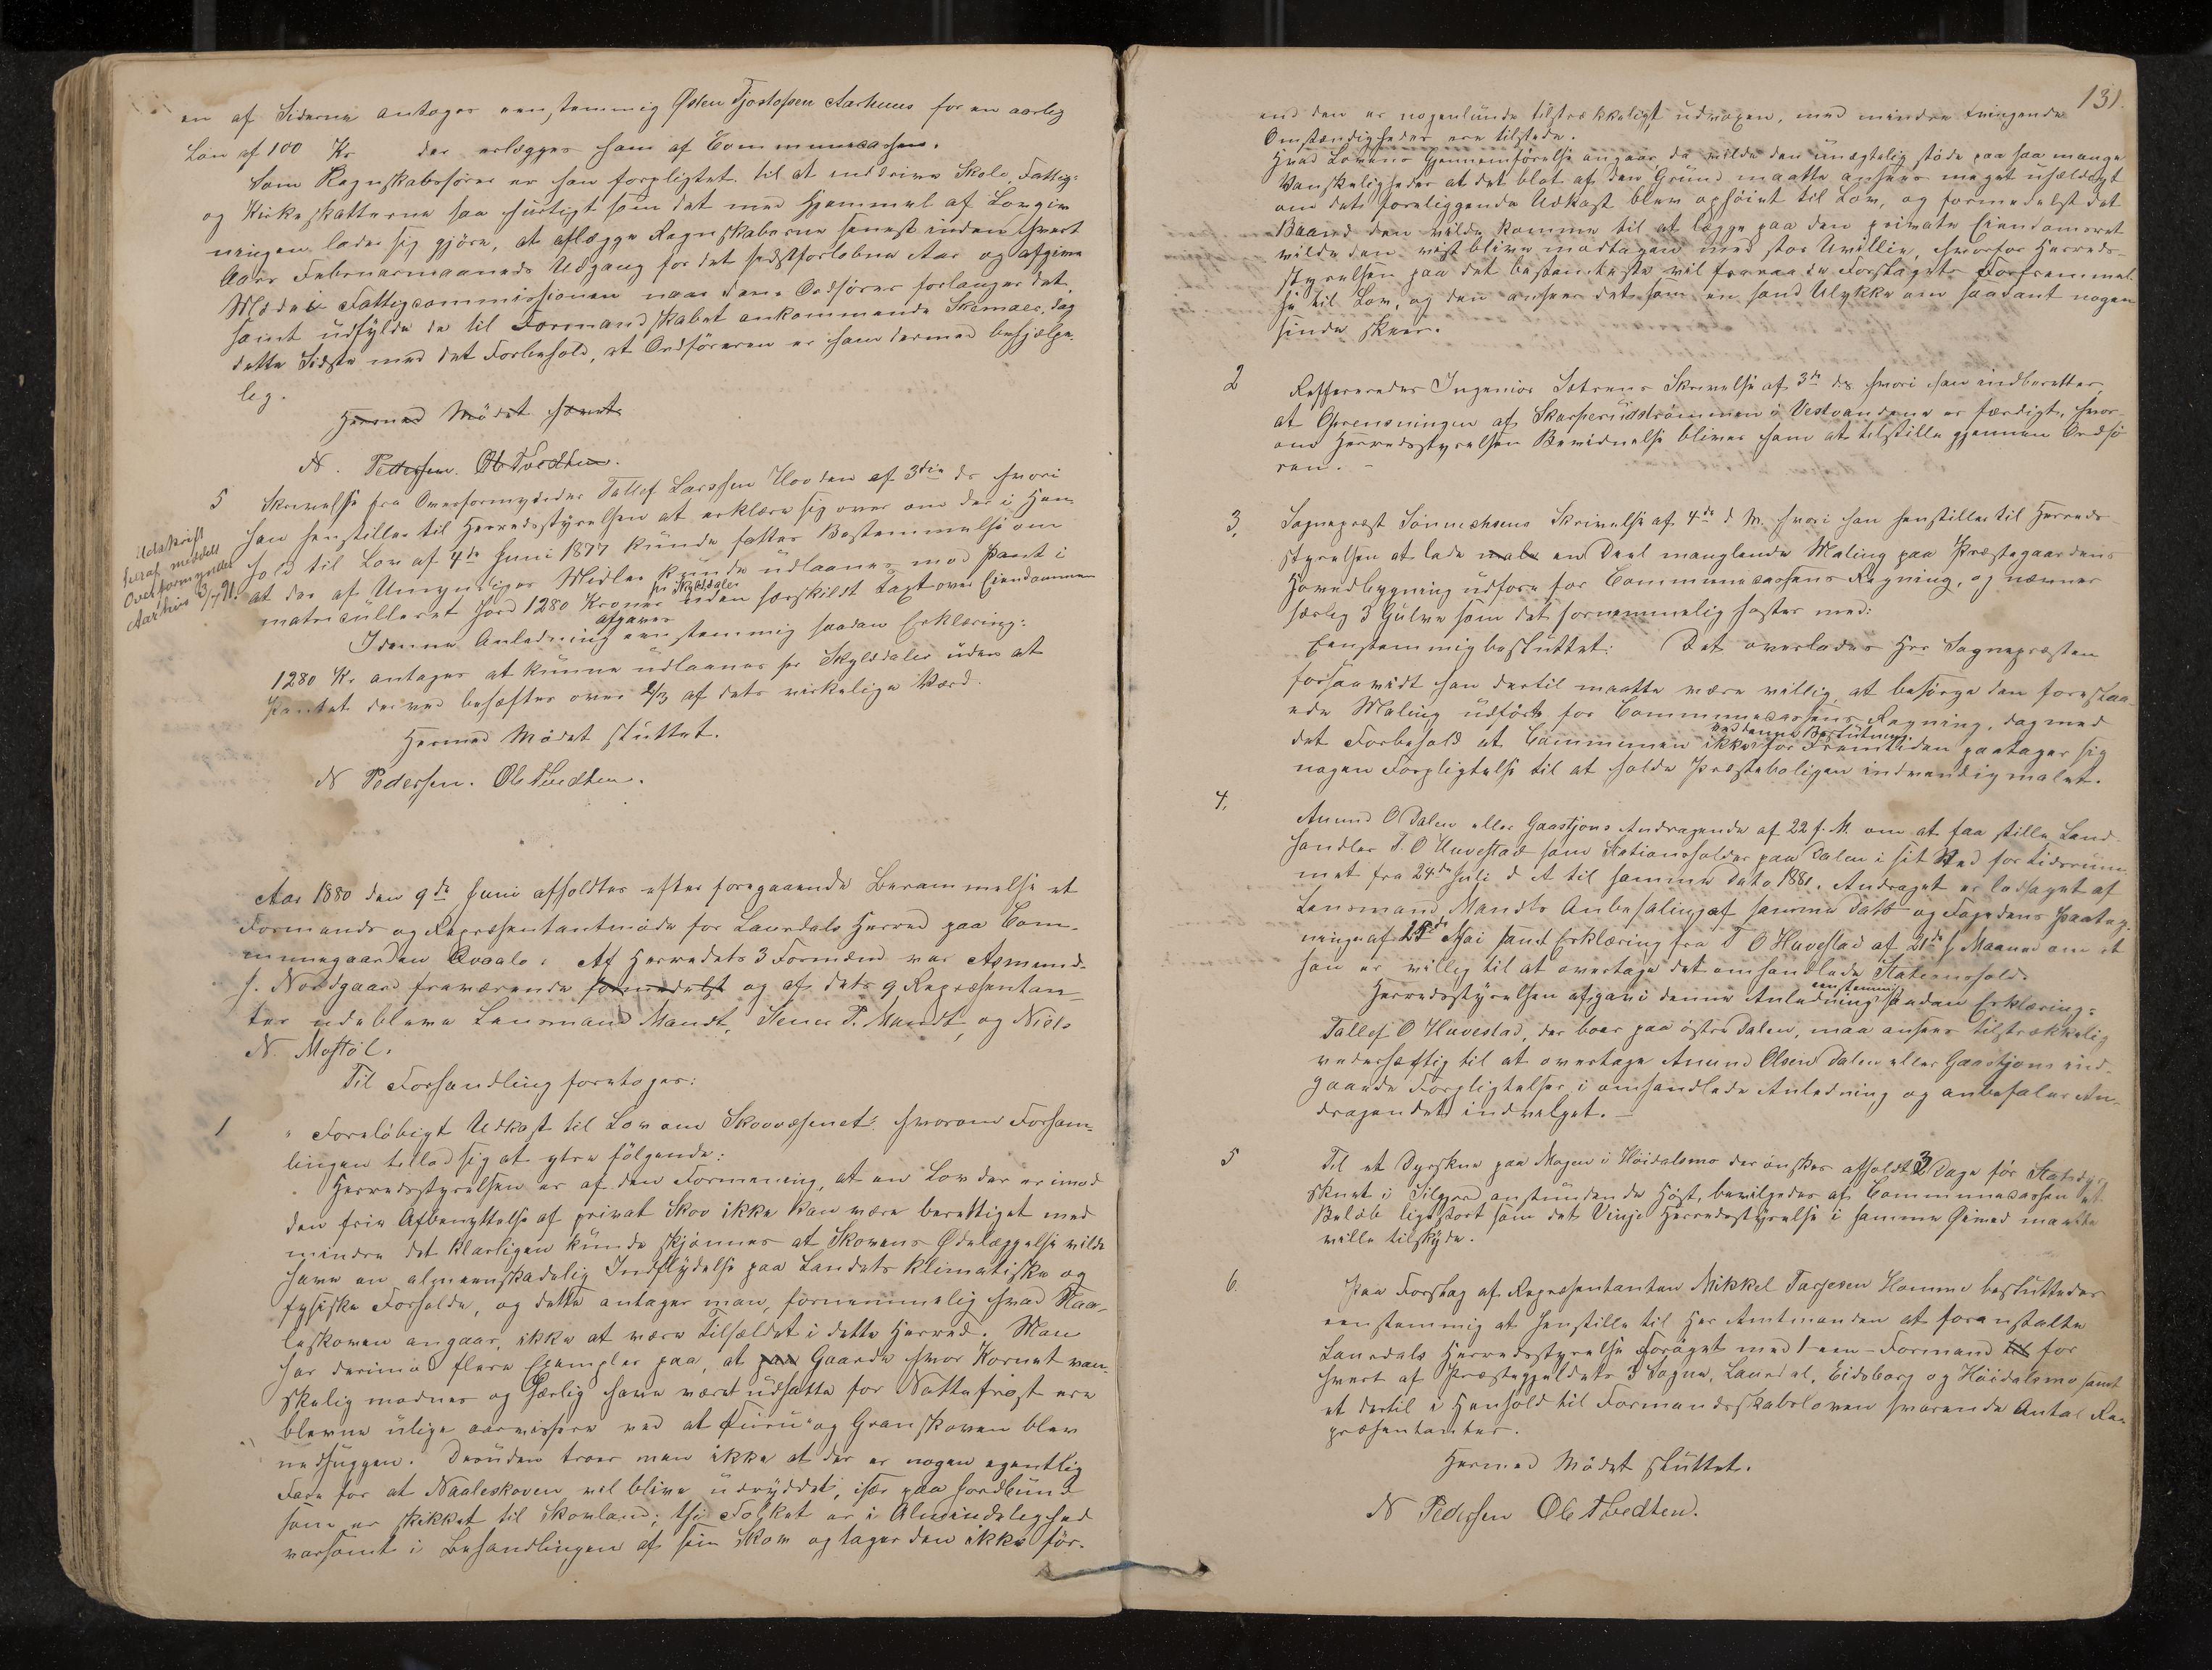 en af Siderne antoges eenstemmig Østen Tjostolfsen Aarhuus for en aarlig
Løn af 100 Kr der erlægges ham af Communecassen.
Som Regnskabsfører er han forpligtet til at inddrive Skole, Fattig-
og Kirkeskatterne saa hurtigt som det med Hjemmel af Lovgiv
ningen lader sig gjöre, at aflægge Regnskaberne senest inden hvert
Aars Februarmaaneds Udgang for det sidstforløbne Aar og afgive
Møde i Fattigcommissionen naar dens Ordfører forlanger det,
samt udfylde de til Formandskabet ankommende Skemaer, dog
dette Sidste med det Forbehold, at Ordföreren er ham dermed behjælpe
lig.
Hermed Mödet hævet
N. Pedersen. Ole Tvedten.
5 Skrivelse fra Overformynder Tallef Larssen Hooden af 3die ds hvori
han henstiller til Herredsstyrelsen at erklære sig over om der i Hen-
hold til Lov af 4de Juni 1877 kunde fattes Bestemmelse om
at der af Umyndiges Midler kunde udlaanes mod Pant i
pr Skylddaler
matriculleret Jord 1280 Kroner uden særskildt Taxt over Eiendommen
Udskrift
heraf meddelt
Overformynder
Aarhuus 3/7 91.
afgaves
I denne Anledning eenstemmig saadan Erklæring:
1280 Kr antages at kunne udlaanes pr Skylddaler uden at
Pantet derved behæftes over 2/3 af dets virkelige Værd.
Hermed Mödet sluttet.
N Pedersen. Ole Tvedten.
Aar 1880 den 9de Juni afholdtes efter foregaaende Berammelse et
Formands og Repræsentantmöde for Laurdals Herred paa Com-
munegaarden Qvaale. Af Herredets 3 Formænd var Asmund
S. Nordgaard fraværende formedelst og af dets 9 Repræsentan-
ter udebleve Lensmand Mandt, Stener T. Mandt, og Niels
N. Mostöl.
Til Forhandling foretoges:
1 " Foreløbigt Udkast til Lov om Skovvæsenet" hvorom Forsam-
lingen tillod sig at ytre fölgende:
Herredsstyrelsen er af den Formening, at en Lov der er imod
den frie Afbenyttelse af privat Skov ikke kan være berettiget med
mindre det klarligen kunde skjönnes at Skovens Ødelæggelse vilde
have en almeenskadelig Indflydelse paa Landets klimatiske og
fysiske Forholde, og dette antager man, fornemmelig hvad Naa-
leskoven angaar, ikke at være Tilfældet i dette Herred. Man
har derimod flere Exempler paa, at paa Gaarde hvor Kornet van-
skelig modnes og særlig have været udsatte for Nattefrost ere
blevne ulige aarvissere ved at Furu- og Granskoven blev
nedhuggen. Desuden troer man ikke at der er nogen egentlig
Fare for at Naaleskoven vil blive uddryddet, især paa Jordbund
som er skikket til Skovland; thi Folket er i Almindelighed
varsomt i Behandlingen af sin Skov og tager den ikke för-
131.
end den er nogenlunde tilstrækkeligt udvoxen, med mindre tvingende
Omstændigheder ere tilstede.
Hvad Lovens Gjennemförelse angaar, da vilde den unægtelig støde paa saa mange
Vanskeligheder at det blot af den Grund maatte ansees meget uheldigt
om det foreliggende Udkast blev ophøiet til Lov, og formedelst det
Baand den vilde komme til at lægge paa den private Eiendomsret
vilde den vist blive modtagen med stor Uvillie, hvorfor Herreds-
styrelsen paa det bestemteste vil fraraade Forslagets Forfremmel
se til Lov, og den anseer det som en sand Ulykke om saadant nogen
sinde skeer.
2 Refereredes Ingeniør Sætrens Skrivelse af 3de ds hvori han indberetter
at Oprensningen af Skarperudströmmen i Vestvandene er færdigt, hvor-
om Herredsstyrelsen Bevidnelse bliver ham at tilstille gjennem Ordfö
ren. -
3, Sognepræst Sönnichsens Skrivelse af 4de d M. hvori han henstiller til Herreds-
styrelsen at lade male en Deel manglende Maling paa Præstegaardens
Hovedbygning udføre for Communecassens Regning, og nævner
særlig 3 Gulve som det fornemmelig haster med:
Eenstemmig besluttet: Det overlades Hr Sognepræsten
forsaavidt han dertil maatte være villig at besörge den foreslaa-
ede Maling udfört for Communecassens Regning, dog med
ved denne Beslutning
det Forbehold at Communen ikke for Fremtiden paatager sig
nogen Forpligtelse til at holde Præsteboligen indvendig malet.
4. Anund O Dalen eller Gaastjons Andragende af 22 f. M. om at faa stille Land-
handler T. O Huvestad som Stationsholder paa Dalen i sit Sted for Tidsrum-
met fra 24de Juli d A til samme Dato 1881. Andraget er ledsaget af
Lensmand Mandts Anbefaling af samme Dato og Fogdens Paateg-
ninger af 29de Mai samt Erklæring fra T O Huvestad af 21de s Maaned om at
han er villig til at overtage det omhandlede Stationshold.
eenstemmig
Herredsstyrelsen afgav i denne Anledning saadan Erklæring:
Tallef O Huvestad, der boer paa östre Dalen, maa ansees tilstrækkelig
vederhæftig til at overtage Anund Olsen Dalen eller Gaastjons ind-
gaaede Forpligtelser i omhandlede Anledning og anbefaler An-
dragendet indvilget. -
5 Til et Dyrskue paa Mogen i Höidalsmo der önskes afholdt 3 Dage för Statsdyr
skuet i Siljord anstundende Höst, bevilgedes af Communecassen et
Beløb ligestort som det Vinje Herredsstyrelse i samme Øiemed maatte
ville tilskyde.
6. Paa Forslag af Repræsentanten Mikkel Tarjesen Homme besluttedes
eenstemmig at henstille til Hr Amtmanden at foranstalte
Laurdals Herredsstyrelse foröget med 1-een-Formand til for
hvert af Præstegjeldets 3 Sogne, Laurdal, Eidsborg og Höidalsmo samt
et dertil i Henhold til Formandsskabsloven svarende Antal Re-
præsentanter.
Hermed Mödet sluttet.
N Pedersen Ole Tvedten.